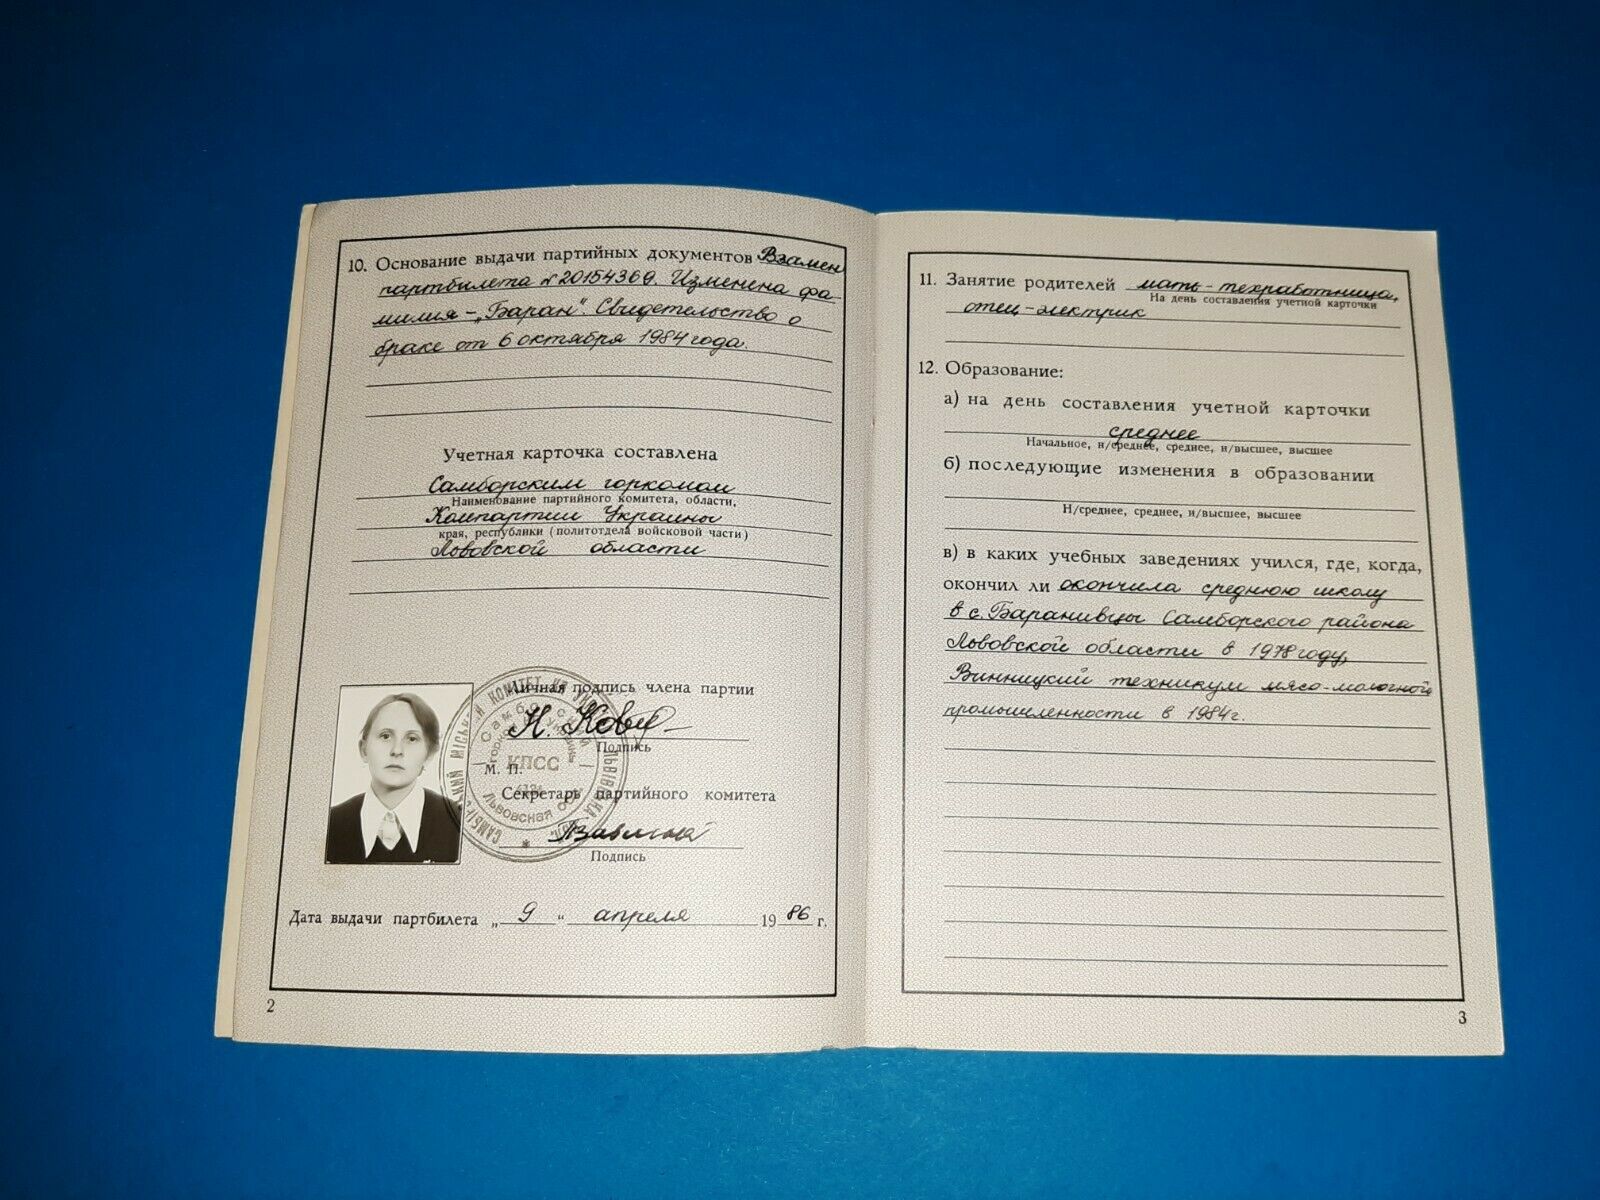 10. Основание выдачи партийных документов Взамен
партбилета № 20154369. Изменена фа-
милия – „Баран“. Свидетельство о
браке от 6 октября 1984 года.
Учетная карточка составлена
Самборским горкомом
Наименование партийного комитета, области,
Компартии Украины
края, республики (политотдела войсковой части)
Львовской области
Личная подпись члена партии
Н. Кову
Подпись
М. П.
КПСС
Львовская обл.
Секретарь партийного комитета
Подпись
Дата выдачи партбилета „ 9 “ апреля 19 86 г.
2
11. Занятие родителей мать – техработница,
На день составления учетной карточки
отец – электрик
12. Образование:
а) на день составления учетной карточки
среднее
Начальное, н/среднее, среднее, н/высшее, высшее
б) последующие изменения в образовании
Н/среднее, среднее, н/высшее, высшее
в) в каких учебных заведениях учился, где, когда,
окончил ли окончила среднюю школу
в с. Баранивцы Самборского района
Львовской области в 1978 году,
Винницкий техникум мясо-молочной
промышленности в 1984 г.
3